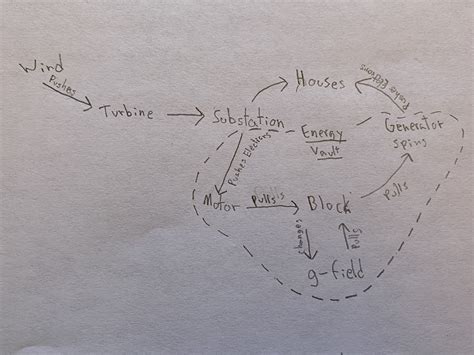 Wind
Pushes
Turbine
Substation
Houses
Pushes Electrons
Energy
Vault
Generator
Spins
Pushes Electrons
Motor
Pulls
Block
Pulls
Changes
Pulls
g-field